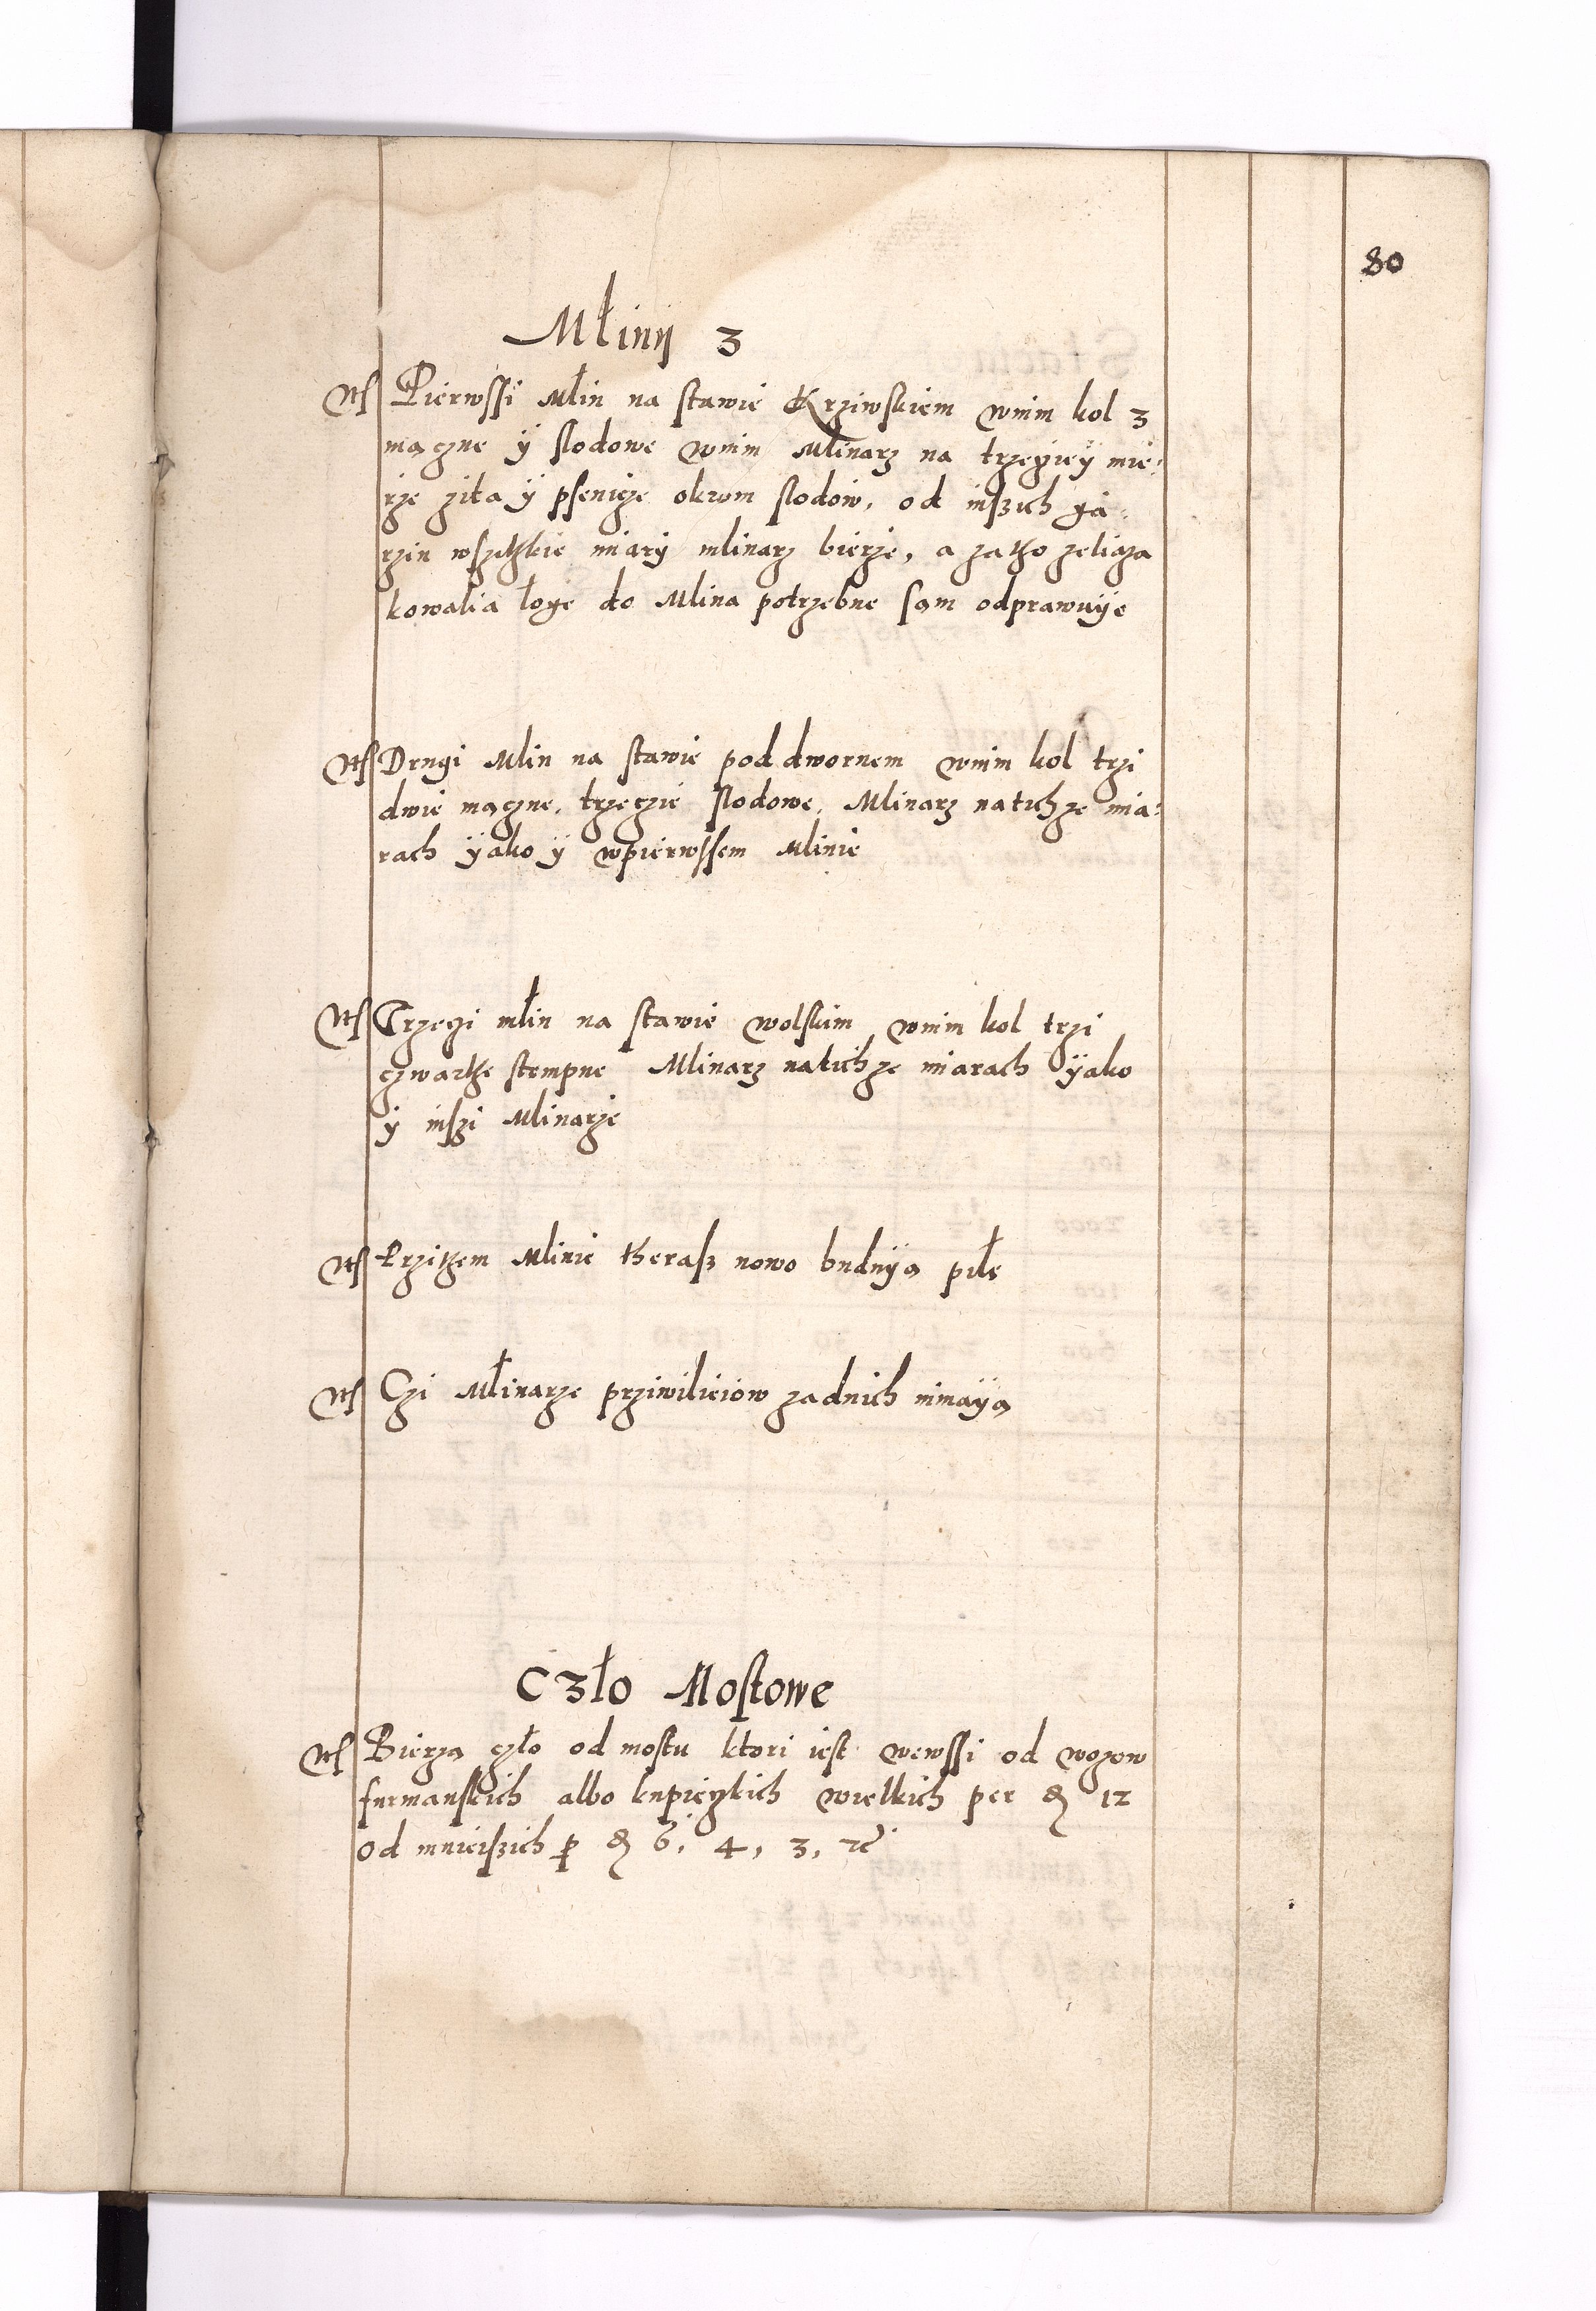 80
Młinÿ 3
Itē Pierwssi Młin na stawie Krziwskiem wnim kol 3
mączne ÿ słodowe wnim Mlinarz na trzecieÿ mie:
rże zita ÿ psenicze okrom słodow, od inszich ja:
rzin wszitkie miarÿ mlinarz bierze, a zatho zeliaza
kowalia łoge do Mlina potrzebne sam odprawuÿe
Itē Drugi Mlin na stawie pod dwornem wnim kol trzi
dwie mączne, trzeczie słodowe, Mlinarz natichze mia:
rach ÿako ÿ wpierwssem Mlinie
Itē Trzeczi młin na stawie wolskim wnim kol trzi
czwarthe stempne Mlinarz natichze miarach ÿako
ÿ inszi Mlinarze
Itē Przithem Mlinie theraß nowo buduÿą piłe
Itē Czi Młinarze prziwilieiow zadnich nimaÿą
Czło Mostowe
Itē Bierzą czło od mostu ktori iest wewssi od wozow
furmanskich albo kupieczkich wielkich per ₰ 12
Od mnieiszich ꝑ ₰ 6, 4, 3, ꝛc